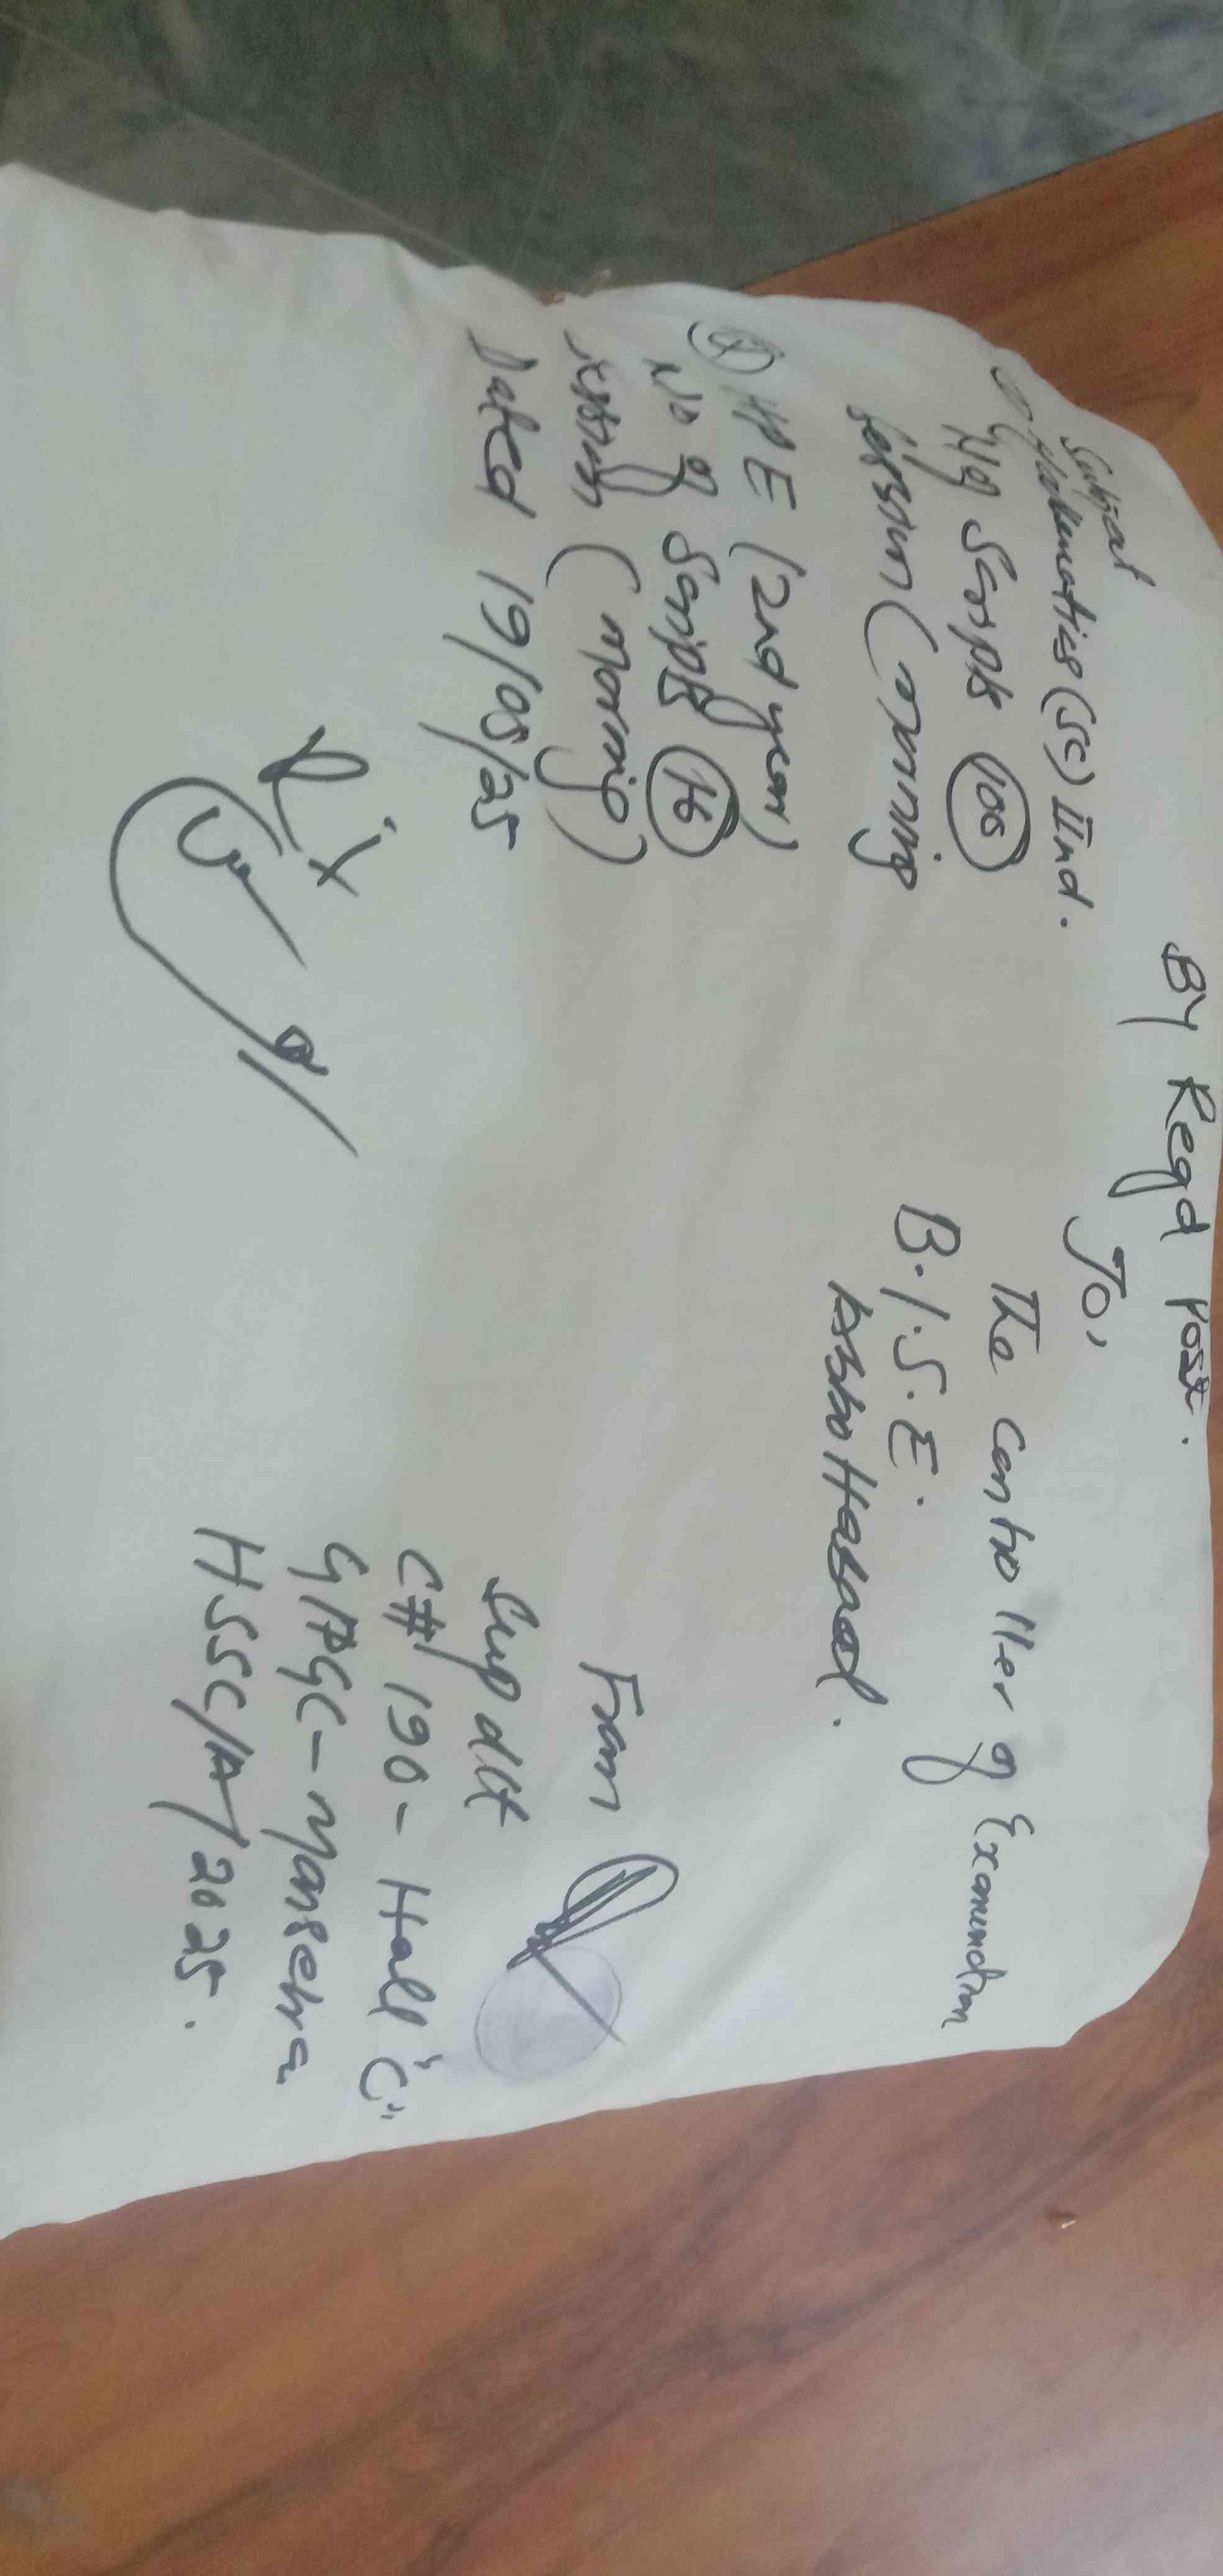 By Regd Post.
To,
The Controller of Examination
B.I.S.E.
Abbottabad.
Subject
① Mathematics (SC) IInd.
No of Scripts
Session (morning
② HPE (2nd year)
No of Scripts 16
Session (morning)
Dated 19/05/25
From
Supdtt
C# 190 - Hall 'C'
GPGC - Mansehra
HSSC/A/2025.